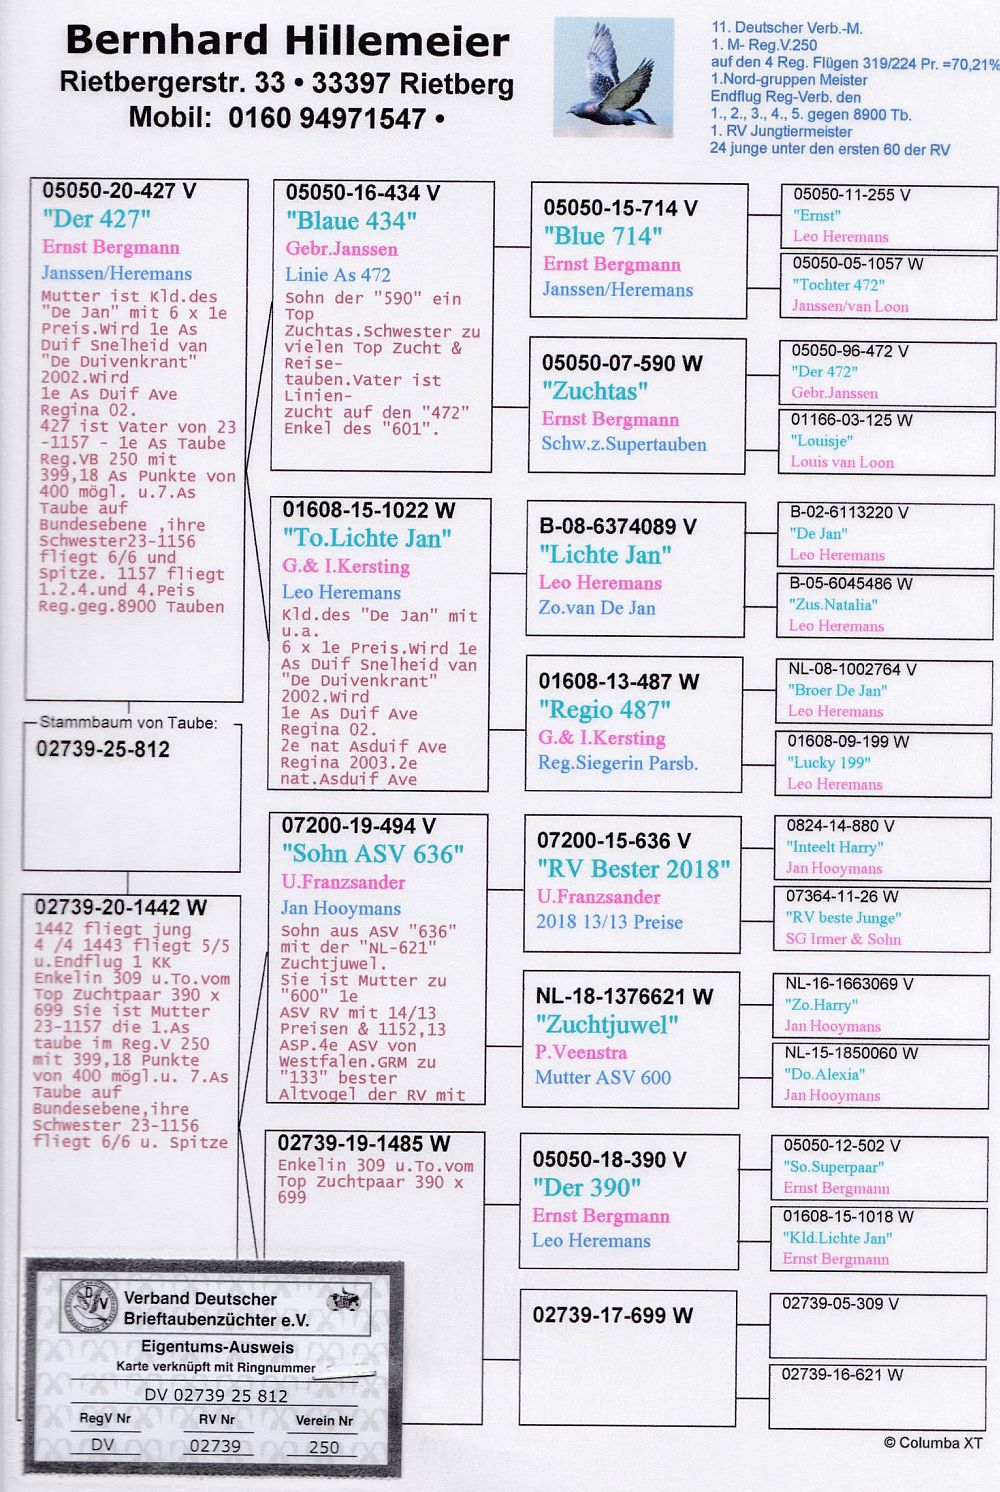 Bernhard Hillemeier
Rietbergerstr. 33 • 33397 Rietberg
Mobil: 0160 94971547 •
11. Deutscher Verb.-M.
1. M- Reg.V.250
auf den 4 Reg. Flügen 319/224 Pr. =70,21%
1.Nord-gruppen Meister
Endflug Reg-Verb. den
1., 2., 3., 4., 5. gegen 8900 Tb.
1. RV Jungtiermeister
24 junge unter den ersten 60 der RV
05050-20-427 V
"Der 427"
Ernst Bergmann
Janssen/Heremans
Mutter ist Kld.des
"De Jan" mit 6 x 1e
Preis.Wird 1e As
Duif Snelheid van
"De Duivenkrant"
2002.Wird
1e As Duif Ave
Regina 02.
427 ist Vater von 23
-1157 - 1e As Taube
Reg.VB 250 mit
399,18 As Punkte von
400 mögl. u.7.As
Taube auf
Bundesebene ,ihre
Schwester23-1156
fliegt 6/6 und
Spitze. 1157 fliegt
1.2.4.und 4.Peis
Reg.geg.8900 Tauben
Stammbaum von Taube:
02739-25-812
02739-20-1442 W
1442 fliegt jung
4 /4 1443 fliegt 5/5
u.Endflug 1 KK
Enkelin 309 u.To.vom
Top Zuchtpaar 390 x
699 Sie ist Mutter
23-1157 die 1.As
taube im Reg.V 250
mit 399,18 Punkte
von 400 mögl.u. 7.As
Taube auf
Bundesebene,ihre
Schwester 23-1156
fliegt 6/6 u. Spitze
05050-16-434 V
"Blaue 434"
Gebr.Janssen
Linie As 472
Sohn der "590" ein
Top
Zuchtas.Schwester zu
vielen Top Zucht &
Reise-
tauben.Vater ist
Linien-
zucht auf den "472"
Enkel des "601".
01608-15-1022 W
"To.Lichte Jan"
G.& I.Kersting
Leo Heremans
Kld.des "De Jan" mit
u.a.
6 x 1e Preis.Wird 1e
As Duif Snelheid van
"De Duivenkrant"
2002.Wird
1e As Duif Ave
Regina 02.
2e nat Asduif Ave
Regina 2003.2e
nat.Asduif Ave
07200-19-494 V
"Sohn ASV 636"
U.Franzsander
Jan Hooymans
Sohn aus ASV "636"
mit der "NL-621"
Zuchtjuwel.
Sie ist Mutter zu
"600" 1e
ASV RV mit 14/13
Preisen & 1152,13
ASP.4e ASV von
Westfalen.GRM zu
"133" bester
Altvogel der RV mit
02739-19-1485 W
Enkelin 309 u.To.vom
Top Zuchtpaar 390 x
699
05050-15-714 V
"Blue 714"
Ernst Bergmann
Janssen/Heremans
05050-07-590 W
"Zuchtas"
Ernst Bergmann
Schw.z.Supertauben
B-08-6374089 V
"Lichte Jan"
Leo Heremans
Zo.van De Jan
01608-13-487 W
"Regio 487"
G.& I.Kersting
Reg.Siegerin Parsb.
07200-15-636 V
"RV Bester 2018"
U.Franzsander
2018 13/13 Preise
NL-18-1376621 W
"Zuchtjuwel"
P.Veenstra
Mutter ASV 600
05050-18-390 V
"Der 390"
Ernst Bergmann
Leo Heremans
02739-17-699 W
05050-11-255 V
"Ernst"
Leo Heremans
05050-05-1057 W
"Tochter 472"
Janssen/van Loon
05050-96-472 V
"Der 472"
Gebr.Janssen
01166-03-125 W
"Louisje"
Louis van Loon
B-02-6113220 V
"De Jan"
Leo Heremans
B-05-6045486 W
"Zus.Natalia"
Leo Heremans
NL-08-1002764 V
"Broer De Jan"
Leo Heremans
01608-09-199 W
"Lucky 199"
Leo Heremans
0824-14-880 V
"Inteelt Harry"
Jan Hooymans
07364-11-26 W
"RV beste Junge"
SG Irmer & Sohn
NL-16-1663069 V
"Zo.Harry"
Jan Hooymans
NL-15-1850060 W
"Do.Alexia"
Jan Hooymans
05050-12-502 V
"So.Superpaar"
Ernst Bergmann
01608-15-1018 W
"Kld.Lichte Jan"
Ernst Bergmann
02739-05-309 V
02739-16-621 W
© Columba XT
Verband Deutscher
Brieftaubenzüchter e.V.
Eigentums-Ausweis
Karte verknüpft mit Ringnummer
DV 02739 25 812
RegV Nr RV Nr Verein Nr
DV 02739 250